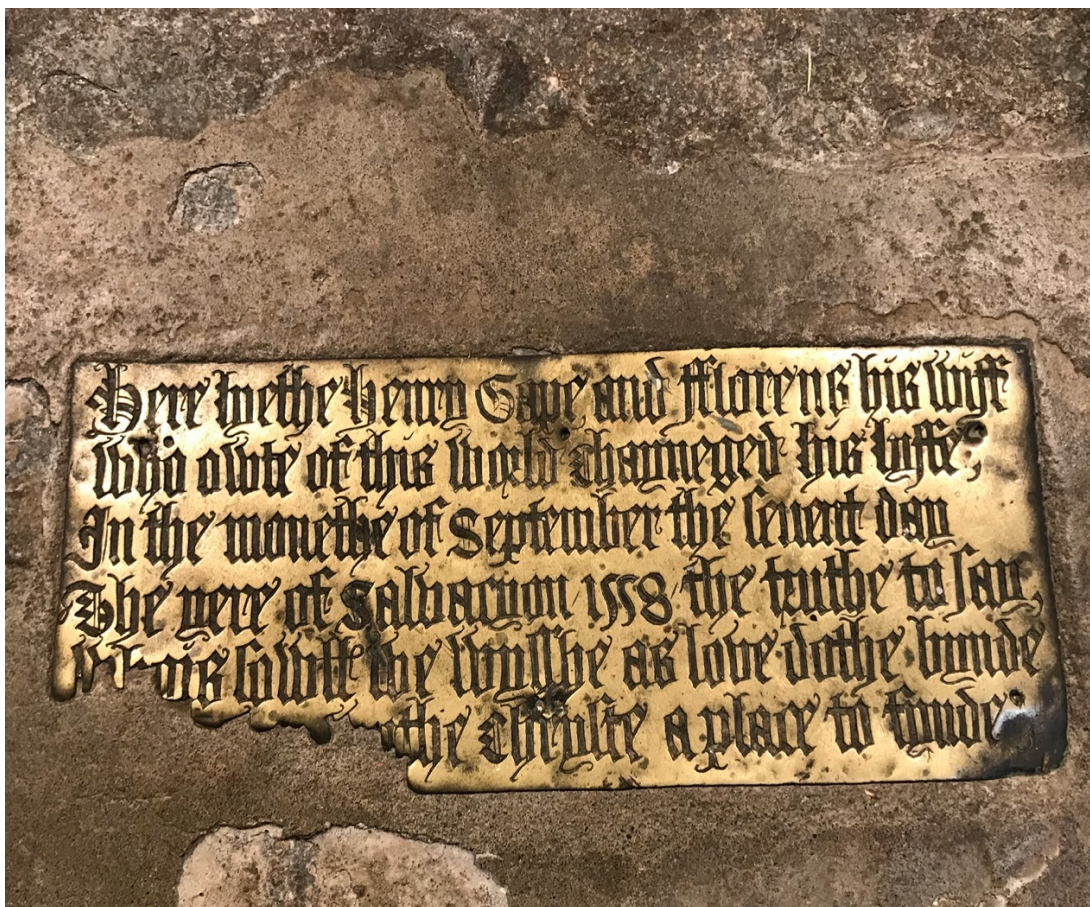 Here lyethe Henry Gape and fflorens his wyff
Who owte of thys world chayneged his lyffe,
In the monethe of September the sevent day
The yere of Salvacyon 1558 the truthe to say,
sowlle we wysshe as love dothe bynde
withe Chryste a place to fynde